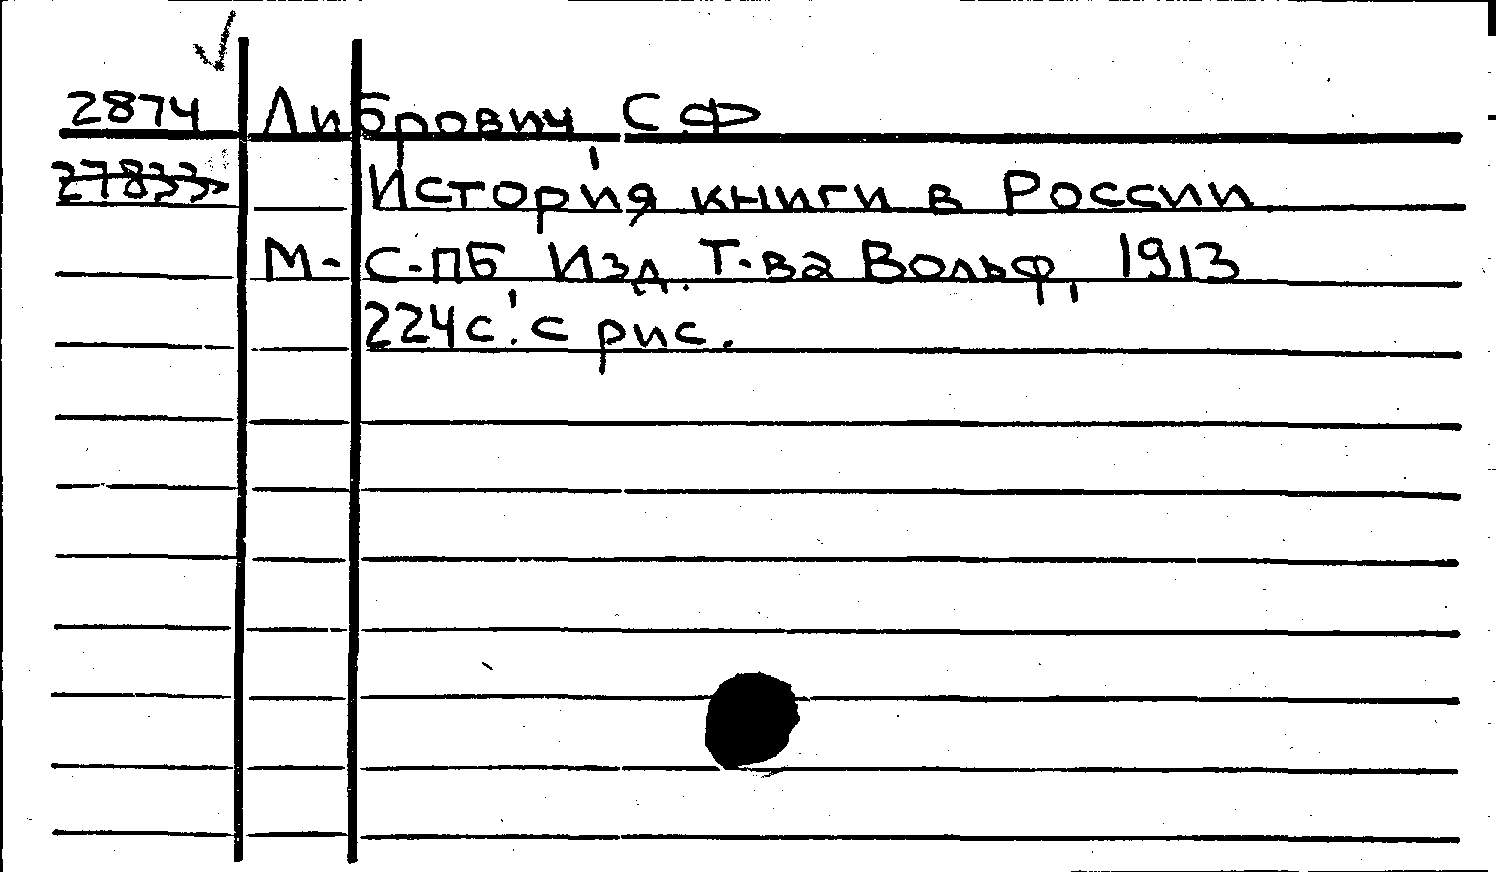 2874 Либрович С Ф
27833 История книги в России
М-С-ПБ Изд. Т-ва Вольф, 1913
224с. с рис.